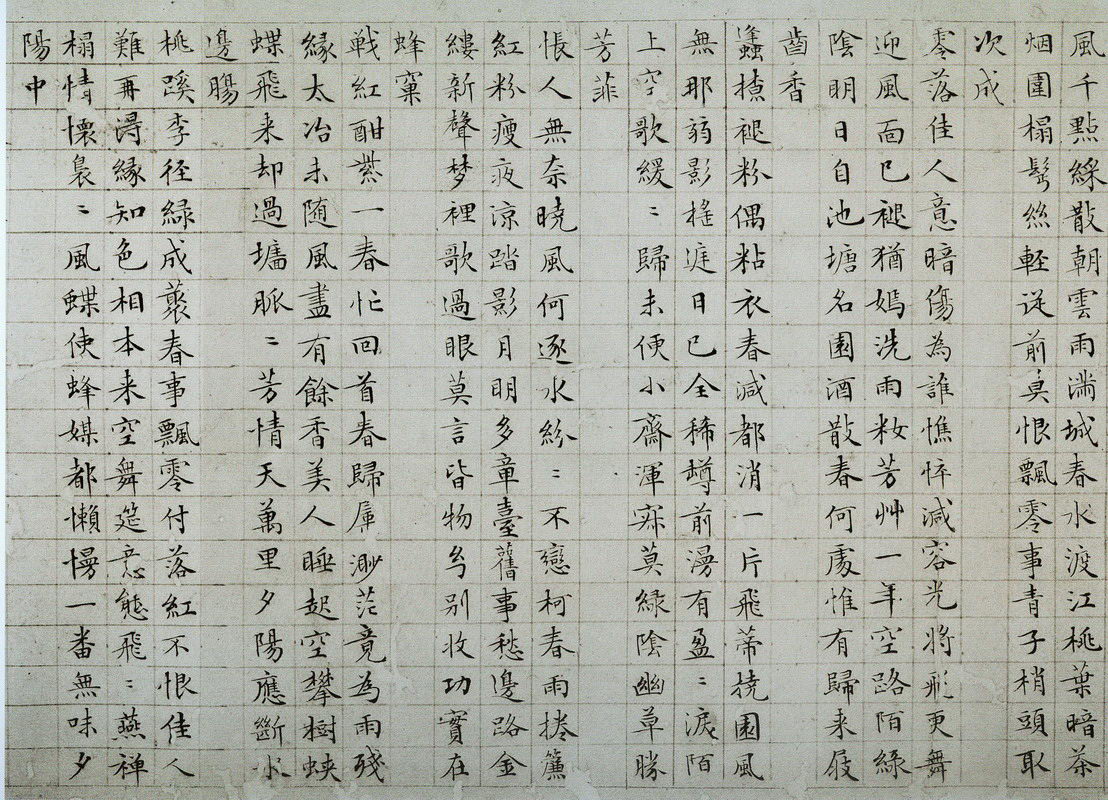 風千點綵散朝雲雨滿城春水渡江桃葉暗茶
烟圍榻鬂絲輕從前莫恨飄零事青子梢頭取
次成
零落佳人意暗傷為誰憔悴減容光將飛更舞
迎風面已褪猶嫣洗雨妝芳艸一年空路陌綠
陰明日自池塘名園酒散春何處惟有歸来屐
齒香
蠭撩褪粉偶粘衣春減都消一片飛蒂撓園風
無那弱影搖庭日已全稀樽前漫有盈〻淚陌
上空歌緩〻歸未便小齋渾寂莫綠陰幽草勝
芳菲
悵人無奈曉風何逐水紛〻不戀柯春雨捲簾
紅粉瘦夜涼踏影月明多章臺舊事愁邊路金
縷新聲梦裡歌過眼莫言皆物别收功實在
蜂窠
戰紅酣紫一春忙回首春歸屬渺茫竟為雨殘
緣太冶未随風盡有餘香美人睡起空攀樹蛺
蝶飛来却過墻脈〻芳情天萬里夕陽應斷水
邊腸
桃蹊李徑綠成叢春事飄零付落紅不恨佳人
難再得緣知色相本来空舞筵意態飛〻燕禪
榻情懷裊〻風蝶使蜂媒都懶慢一番無味夕
陽中